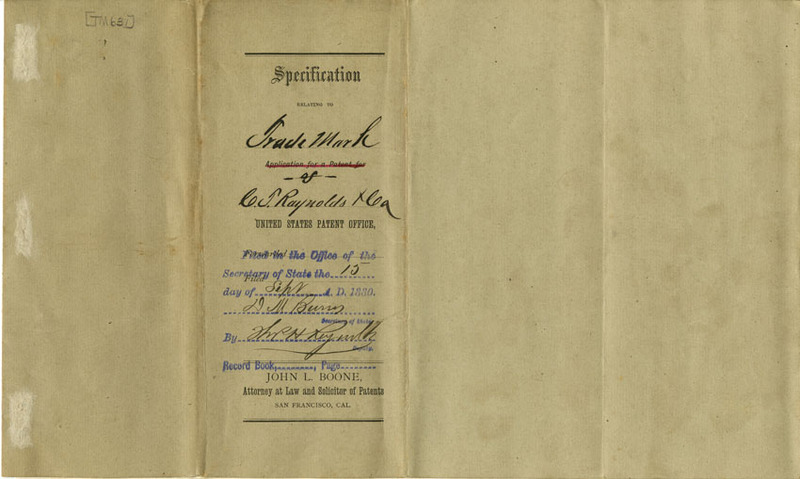 [TM631]
Specification
RELATING TO
Trade Mark
Application for a Patent for
of
C. T. Raynolds & Co
UNITED STATES PATENT OFFICE,
Filed in the Office of the
Secretary of State the 15
day of Sept A. D. 1880.
D M Burns
Secretary of State
By Thos H Reynolds
Deputy.
Record Book, Page
JOHN L. BOONE,
Attorney at Law and Solicitor of Patents
SAN FRANCISCO, CAL.